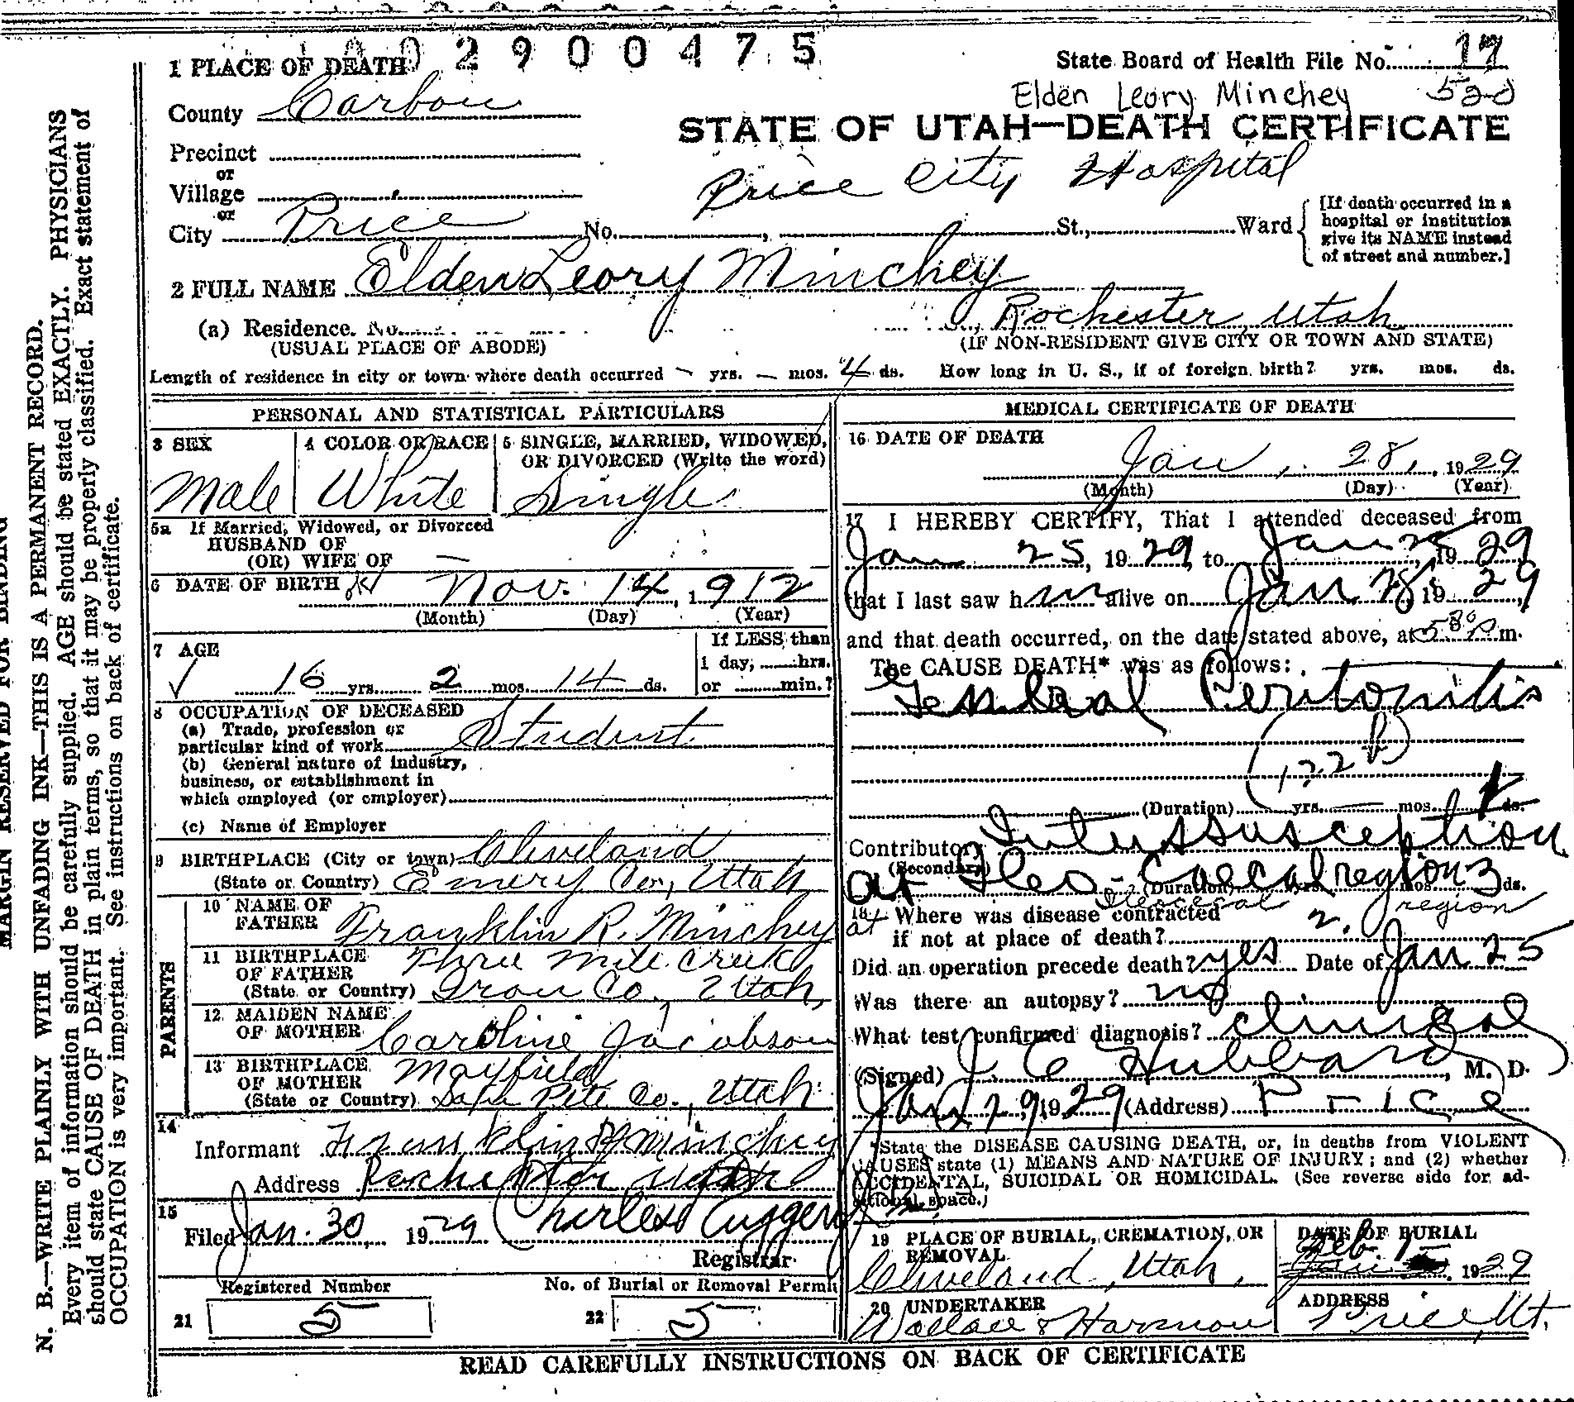 1 PLACE OF DEATH 1002900475
State Board of Health File No. 17
County Carbon
Elden Leory Minchey 520
STATE OF UTAH—DEATH CERTIFICATE
Precinct
or
Village
Price City Hospital
or
City Price No. , St., Ward
[If death occurred in a
hospital or institution
give its NAME instead
of street and number.]
2 FULL NAME Elden Leory Minchey
(a) Residence. No. Rochester, Utah
(USUAL PLACE OF ABODE) (IF NON-RESIDENT GIVE CITY OR TOWN AND STATE)
Length of residence in city or town where death occurred — yrs. — mos. 4 ds. How long in U. S., if of foreign birth? yrs. mos. ds.
PERSONAL AND STATISTICAL PARTICULARS
3 SEX 4 COLOR OR RACE 5 SINGLE, MARRIED, WIDOWED,
OR DIVORCED (Write the word)
Male White Single
5a If Married, Widowed, or Divorced
HUSBAND OF
(OR) WIFE OF —
6 DATE OF BIRTH Nov. 14, 1912
(Month) (Day) (Year)
7 AGE If LESS than
1 day, hrs.
16 yrs. 2 mos. 14 ds. or min.?
8 OCCUPATION OF DECEASED
(a) Trade, profession or
particular kind of work Student
(b) General nature of industry,
business, or establishment in
which employed (or employer)
(c) Name of Employer
9 BIRTHPLACE (City or town) Cleveland
(State or Country) Emery Co., Utah
PARENTS
10 NAME OF
FATHER Franklin R. Minchey
11 BIRTHPLACE
OF FATHER Three Mile Creek
(State or Country) Iron Co., Utah,
12 MAIDEN NAME
OF MOTHER Caroline Jacobson
13 BIRTHPLACE
OF MOTHER Mayfield
(State or Country) San Pete Co., Utah
14
Informant Franklin R Minchey
Address Rochester Utah
15
Filed Jan. 30, 1929
Registrar
Registered Number No. of Burial or Removal Permit
21 5 22 5
MEDICAL CERTIFICATE OF DEATH
16 DATE OF DEATH
Jan. 28, 1929
(Month) (Day) (Year)
17 I HEREBY CERTIFY, That I attended deceased from
Jan 25, 1929, to Jan 28, 1929
that I last saw him alive on Jan 28, 1929,
and that death occurred, on the date stated above, at 5 30 P m.
The CAUSE DEATH* was as follows:
General Peritonitis
(122 B)
(Duration) yrs. mos. ds.
Contributory Intussusception
(Secondary)
at Ileo-Caecal region
(Duration) yrs. mos. 3 ds.
at Ileocecal region
18 Where was disease contracted
if not at place of death?
Did an operation precede death? yes Date of Jan 25
Was there an autopsy? no
What test confirmed diagnosis? clinical
(Signed) J. C. Hubbard, M. D.
Jan 29 1929 (Address) Price
*State the DISEASE CAUSING DEATH, or, in deaths from VIOLENT
CAUSES state (1) MEANS AND NATURE OF INJURY; and (2) whether
ACCIDENTAL, SUICIDAL OR HOMICIDAL. (See reverse side for ad-
ditional space.)
19 PLACE OF BURIAL, CREMATION, OR
REMOVAL
Cleveland, Utah.
DATE OF BURIAL
Feb 1 1929
20 UNDERTAKER
Wallace & Harmon
ADDRESS
Price, Ut.
READ CAREFULLY INSTRUCTIONS ON BACK OF CERTIFICATE
MARGIN RESERVED FOR BINDING
N. B.—WRITE PLAINLY WITH UNFADING INK—THIS IS A PERMANENT RECORD.
Every item of information should be carefully supplied. AGE should be stated EXACTLY. PHYSICIANS
should state CAUSE OF DEATH in plain terms, so that it may be properly classified. Exact statement of
OCCUPATION is very important. See instructions on back of certificate.